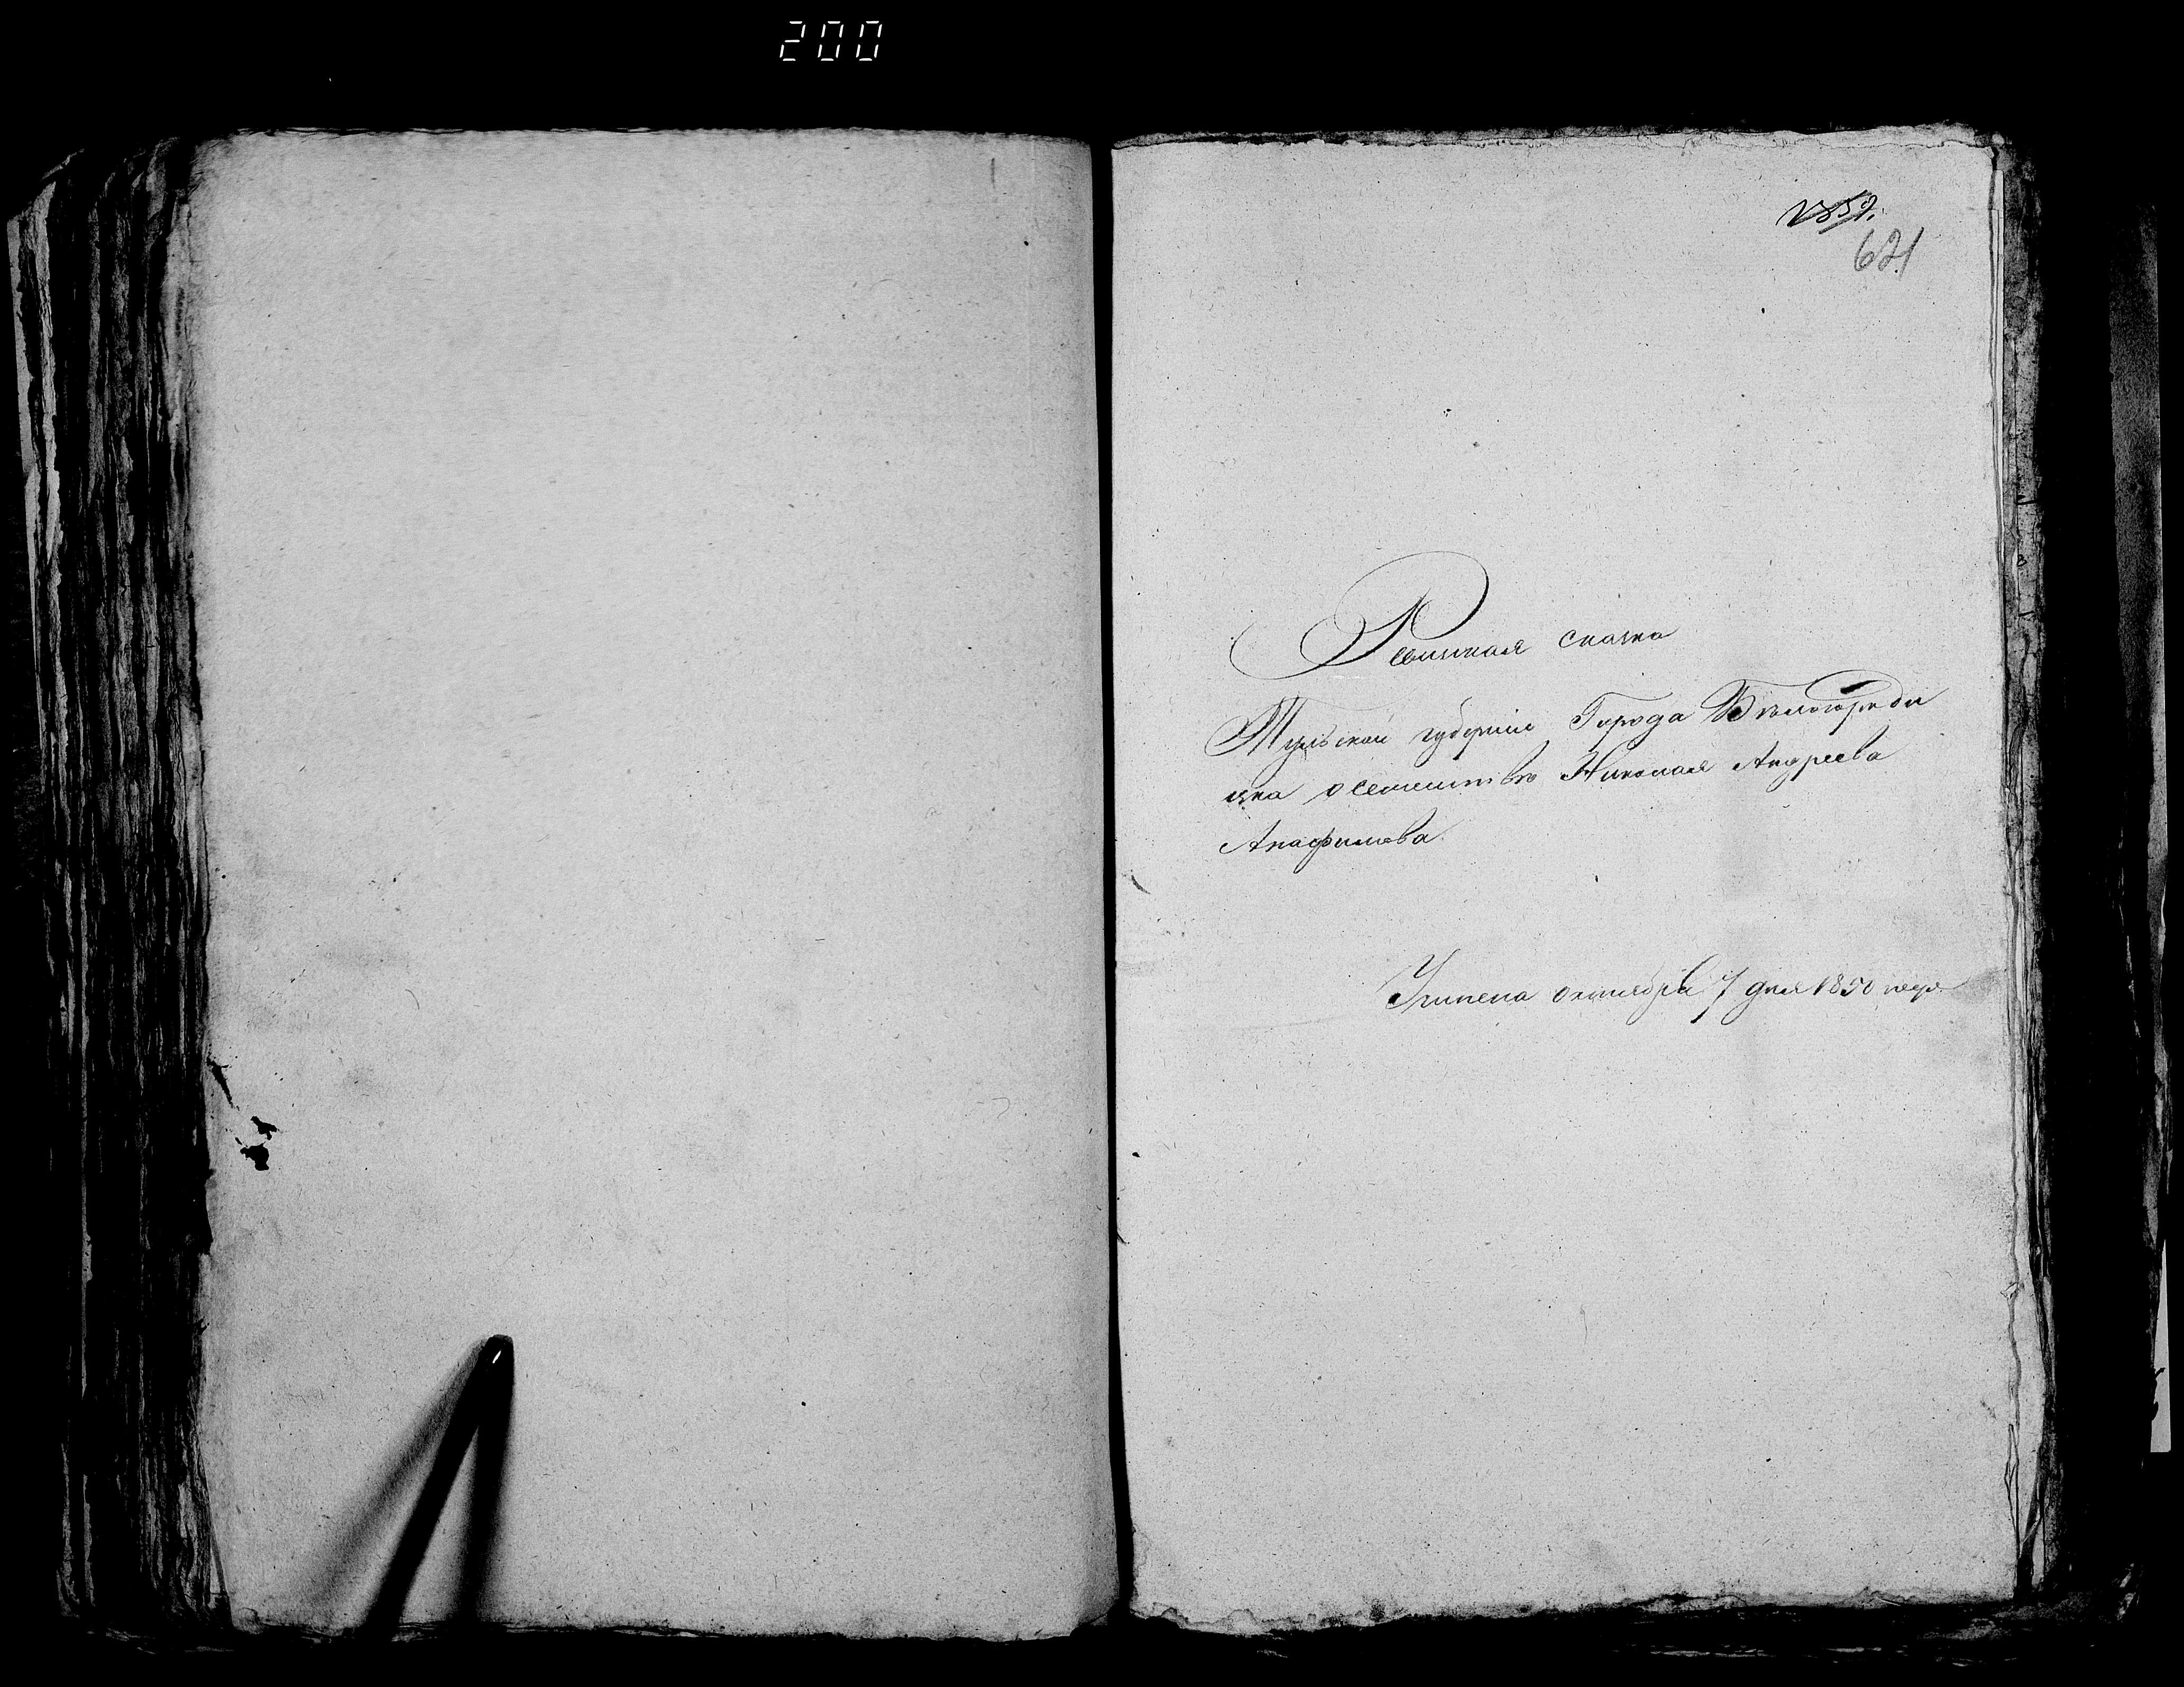 200
1859.
621
Ревижская сказка
Тульской губернии Города Бѣлогороди
щка о семействѣ Николая Андреева
Анафилова
Учинена октября 7 дня 1850 года